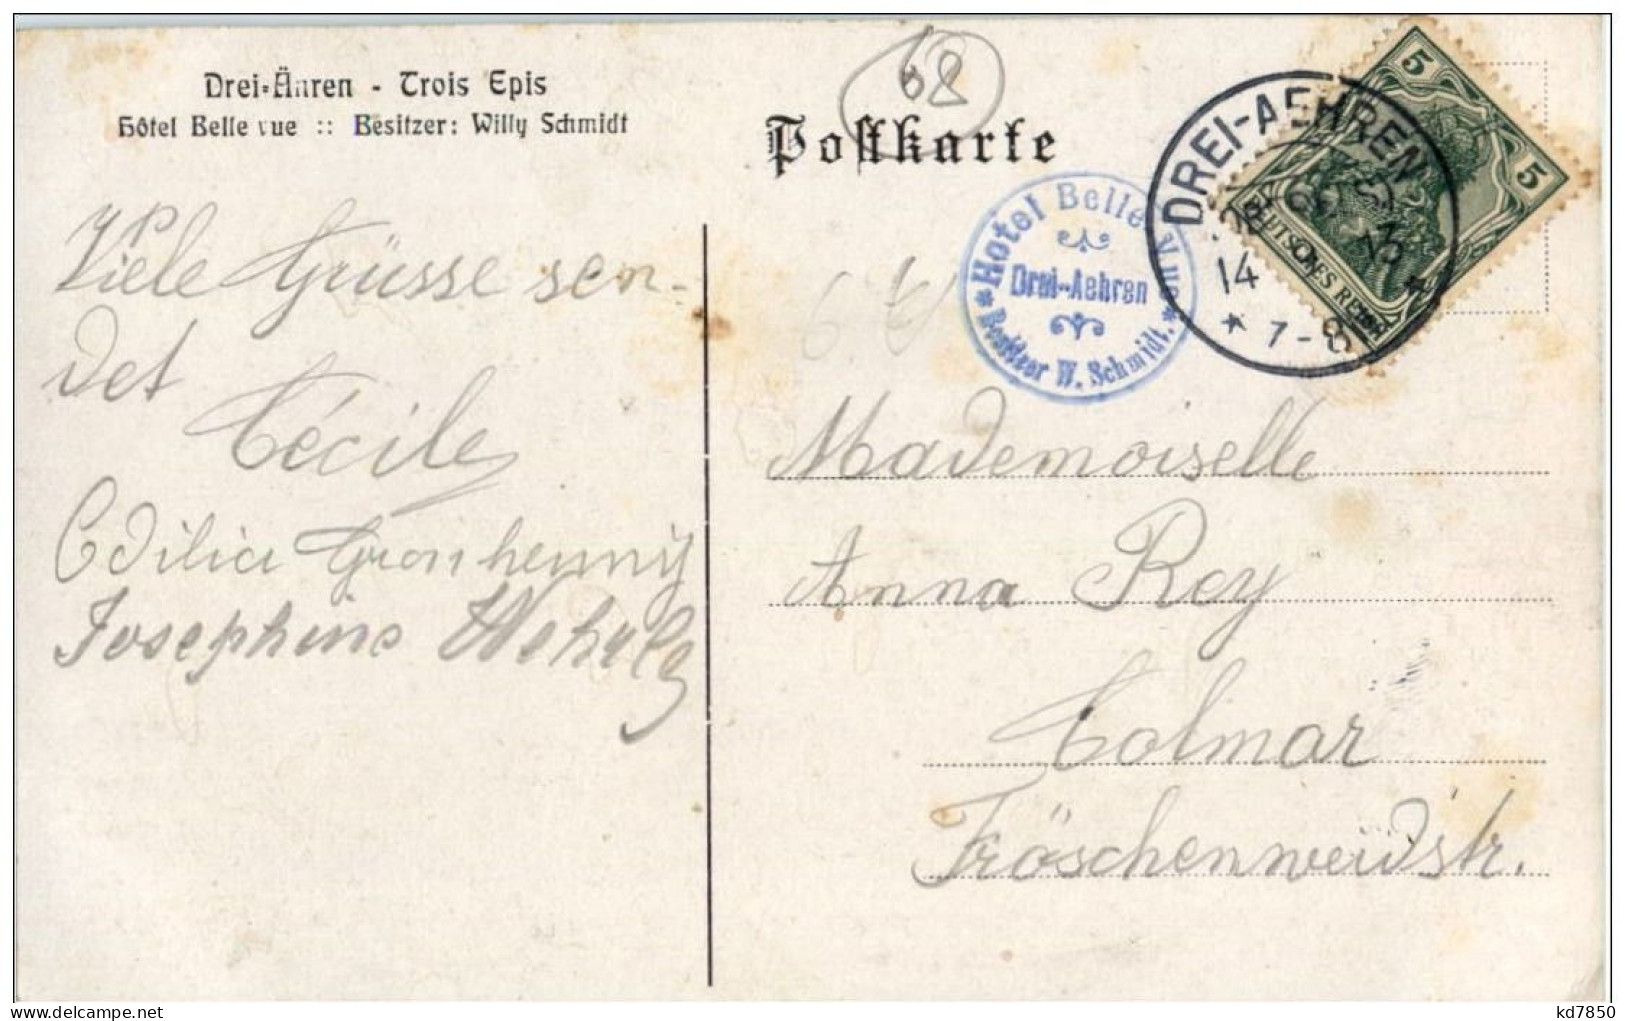 Drei-Ähren - Trois Epis
Hôtel Bellevue :: Besitzer: Willy Schmidt
Viele Grüsse sen-
det
Cécile
Odilia
Josephine
68
Postkarte
Hotel Belle Vue
Drei-Aehren
* Besitzer W. Schmidt. *
DREI-AEHREN
14 13
* 7-8 *
5
5
DEUTSCHES REICH
Mademoiselle
Anna Rey
Colmar
Fröschenweidstr.
kd7850